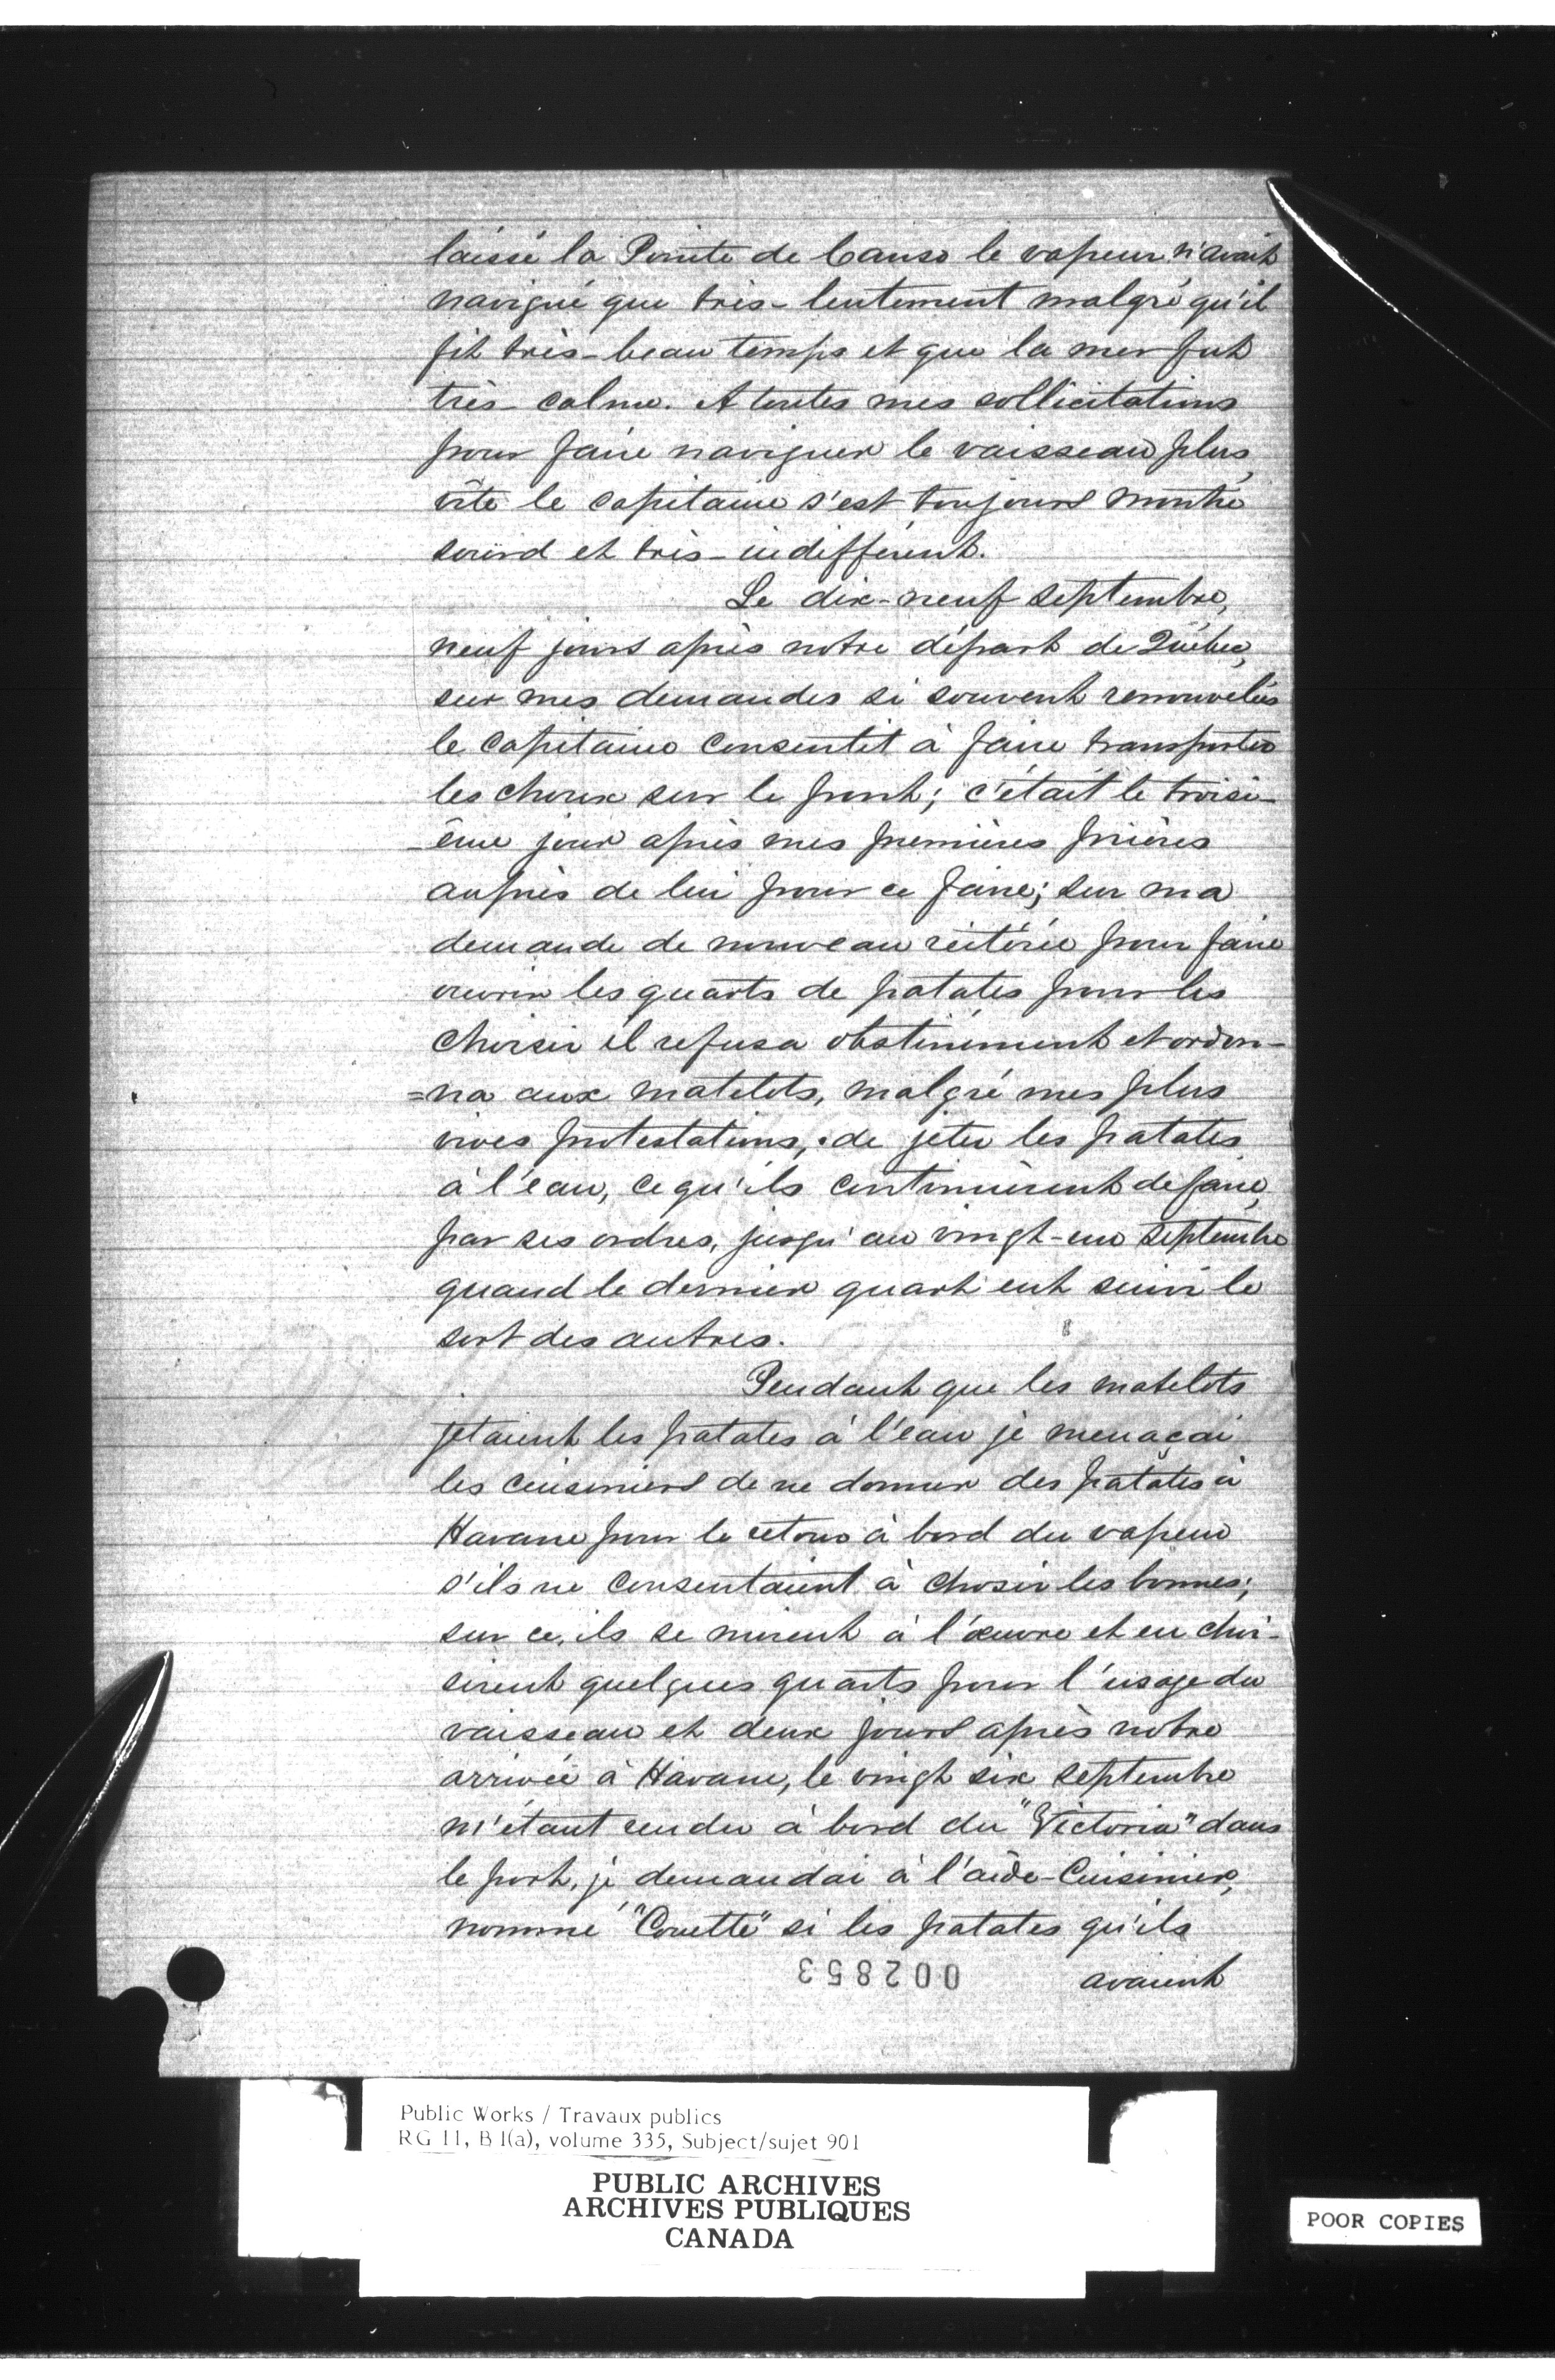 laissé la Pointe de Canso le vapeur n'avait
navigué que très-lentement malgré qu'il
fit très-beau temps et que la mer fut
très-calme. A toutes mes sollicitations
pour faire naviguer le vaisseau plus
vîte le capitaine s'est toujours montré
sourd et très-indifférent.
Le dix-neuf septembre,
neuf jours après notre départ de Québec,
sur mes demandes si souvent renouvelées
le capitaine consentit à faire transporter
les choux sur le pont; c'était le troisi-
-ème jour après mes premières prières
auprès de lui pour ce faire; sur ma
demande de nouveau réitérée pour faire
ouvrir les quarts de patates pour les
choisir il refusa obstinément et ordon-
=na aux matelots, malgré mes plus
vives protestations, de jeter les patates
à l'eau, ce qu'ils continuèrent de faire,
par ses ordres, jusqu'au vingt-un septembre
quand le dernier quart eut suivi le
sort des autres.
Pendant que les matelots
jetaient les patates à l'eau je menaçai
les cuisiniers de ne donner des patates à
Havane pour le retour à bord du vapeur
s'ils ne consentaient à chosir les bonnes;
sur ce, ils se mirent à l'œuvre et en choi-
sirent quelques quarts pour l'usage du
vaisseau et deux jours après notre
arrivée à Havane, le vingt six septembre
m'étant rendu à bord du "Victoria" dans
le port, je demandai à l'aide-Cuisinier,
nommé "Couette" si les patates qu'ils
avaient
002853
Public Works / Travaux publics
RG 11, B 1(a), volume 335, Subject/sujet 901
PUBLIC ARCHIVES
ARCHIVES PUBLIQUES
CANADA
POOR COPIES